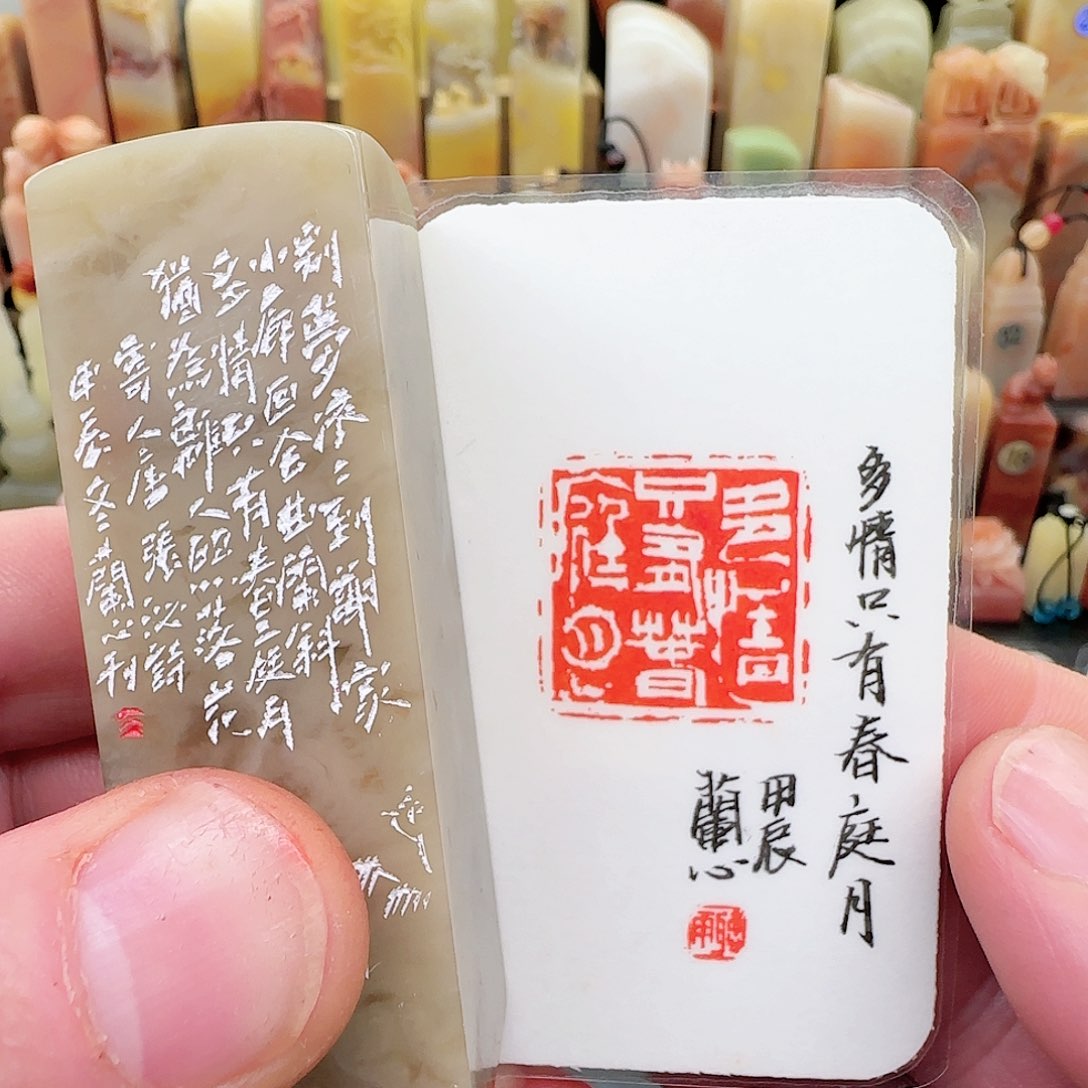 别夢依〻到謝家
小廊回合曲闌斜
多情只有春庭月
猶為離人照落花
寄人唐張泌詩
甲辰冬蘭心刊
多情只有春庭月
多情
只有春
庭月
甲辰
蘭心